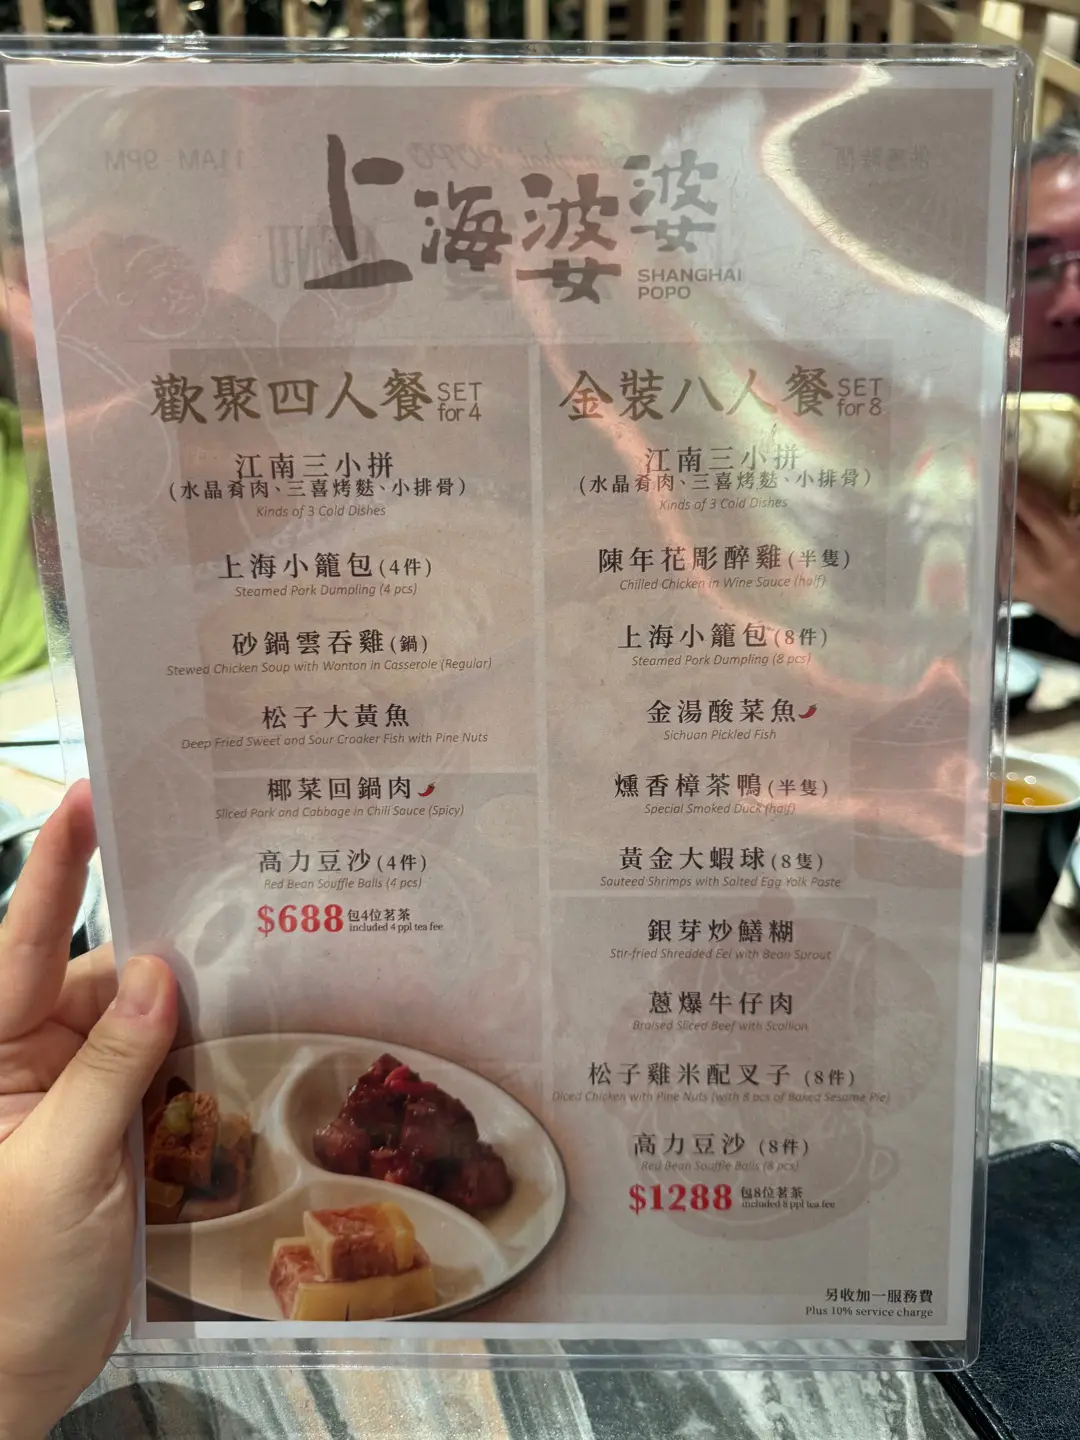 上海婆婆
SHANGHAI
POPO
歡聚四人餐 SET for 4
江南三小拼
(水晶肴肉、三喜烤麩、小排骨)
Kinds of 3 Cold Dishes
上海小籠包(4件)
Steamed Pork Dumpling (4 pcs)
砂鍋雲吞雞(鍋)
Stewed Chicken Soup with Wonton in Casserole (Regular)
松子大黃魚
Deep Fried Sweet and Sour Croaker Fish with Pine Nuts
椰菜回鍋肉
Sliced Pork and Cabbage in Chili Sauce (Spicy)
高力豆沙(4件)
Red Bean Souffle Balls (4 pcs)
$688 包4位茗茶
included 4 ppl tea fee
金裝八人餐 SET for 8
江南三小拼
(水晶肴肉、三喜烤麩、小排骨)
Kinds of 3 Cold Dishes
陳年花彫醉雞(半隻)
Chilled Chicken in Wine Sauce (half)
上海小籠包(8件)
Steamed Pork Dumpling (8 pcs)
金湯酸菜魚
Sichuan Pickled Fish
燻香樟茶鴨(半隻)
Special Smoked Duck (half)
黃金大蝦球(8隻)
Sauteed Shrimps with Salted Egg Yolk Paste
銀芽炒鱔糊
Stir-fried Shredded Eel with Bean Sprout
蔥爆牛仔肉
Braised Sliced Beef with Scallion
松子雞米配叉子 (8件)
Diced Chicken with Pine Nuts (with 8 pcs of Baked Sesame Pie)
高力豆沙 (8件)
Red Bean Souffle Balls (8 pcs)
$1288 包8位茗茶
included 8 ppl tea fee
另收加一服務費
Plus 10% service charge
11AM - 9PM
MENU